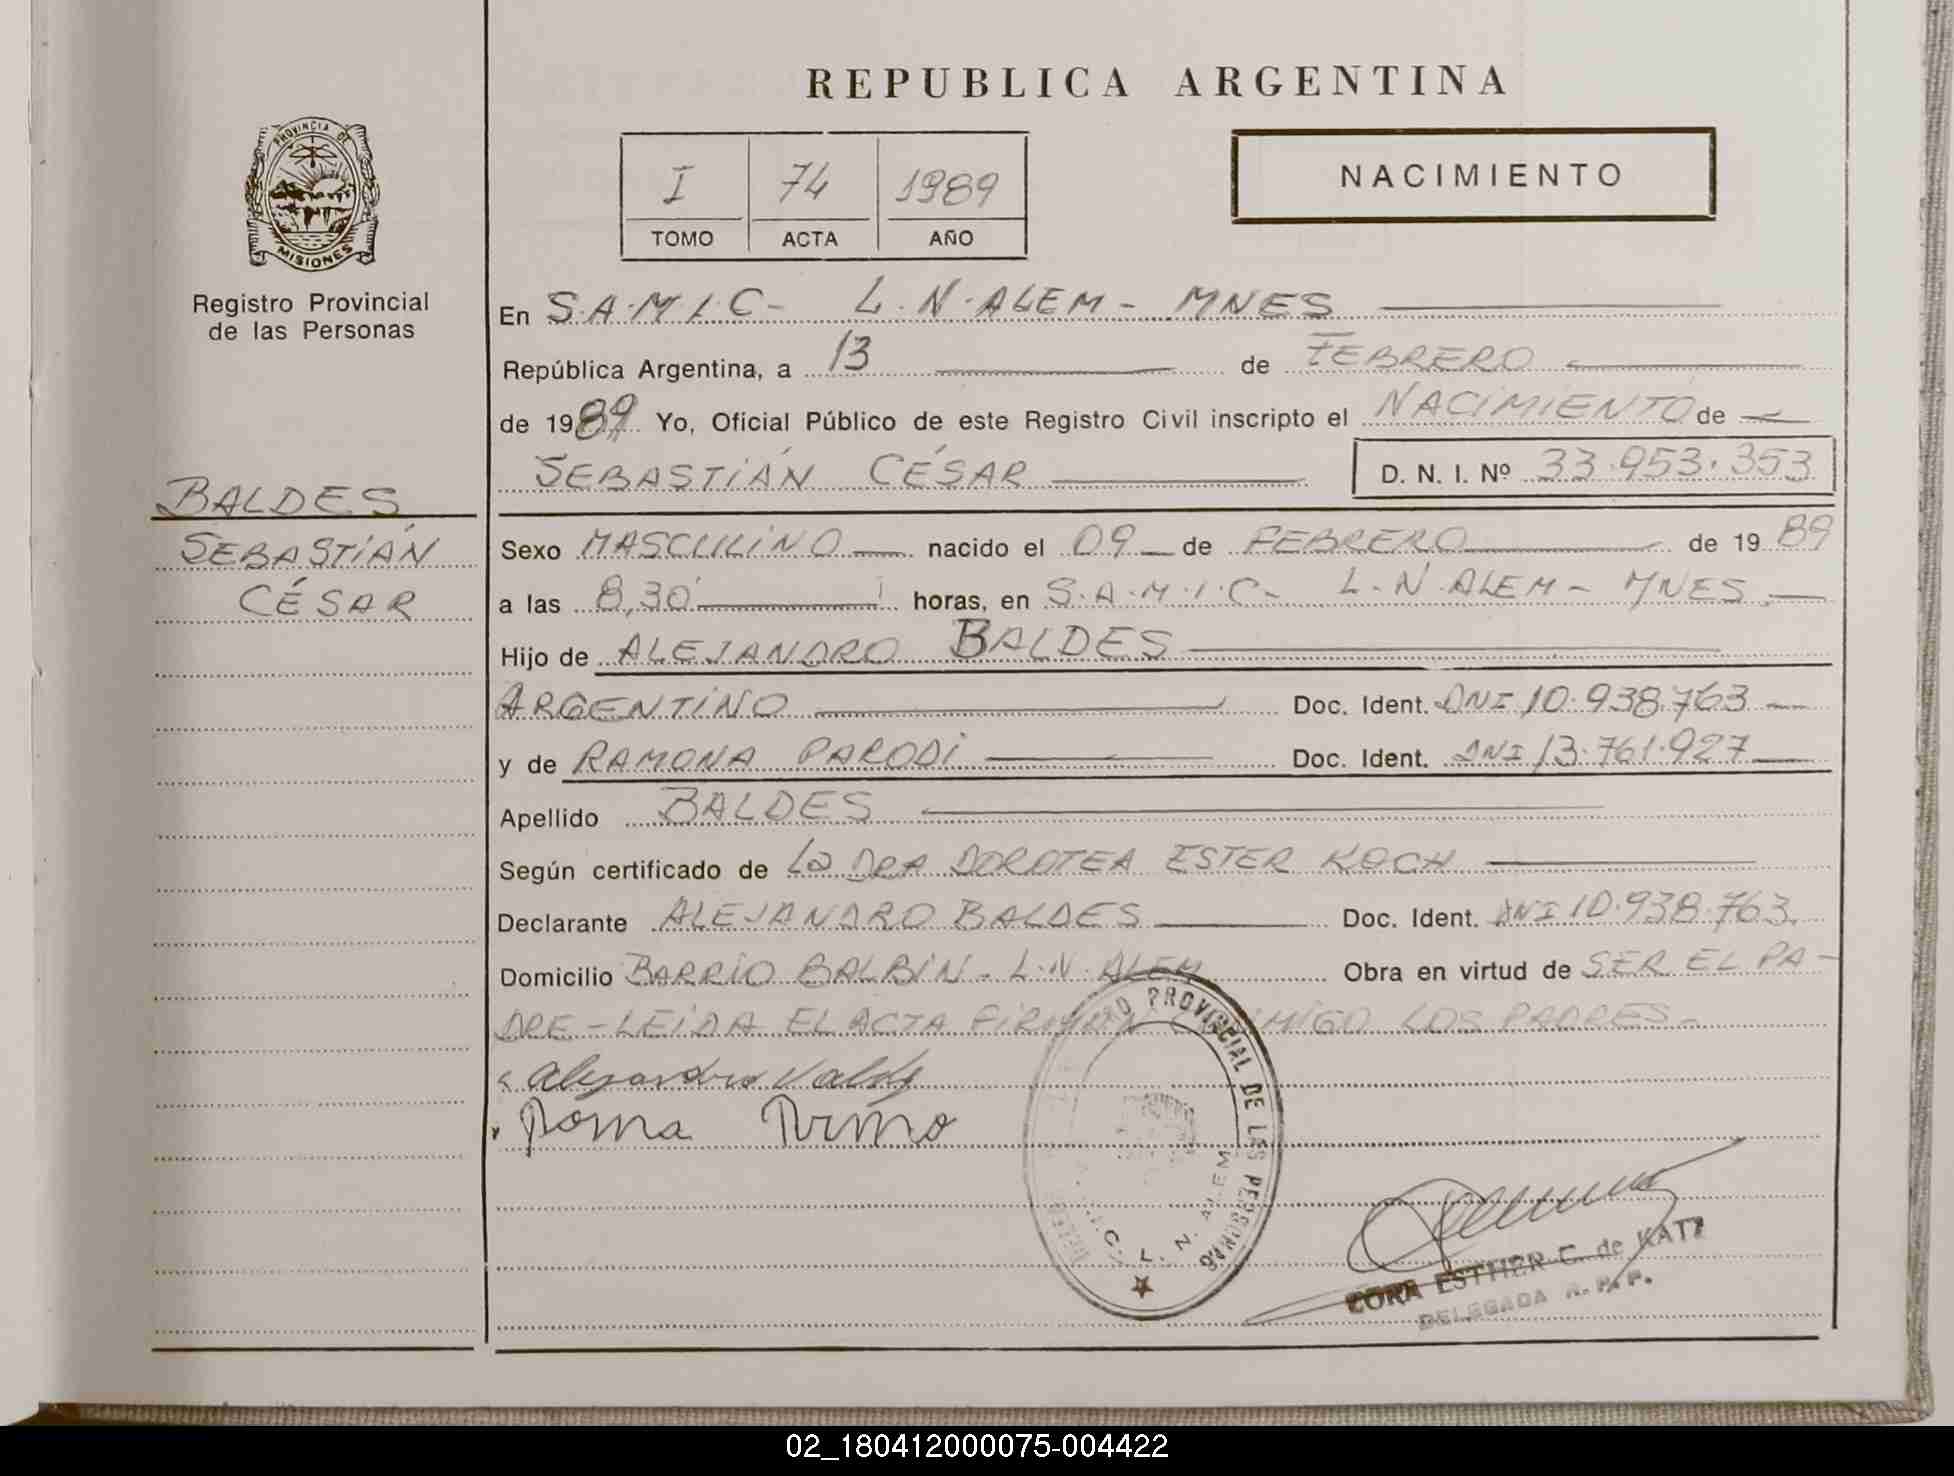 REPUBLICA ARGENTINA
PROVINCIA DE
MISIONES
Registro Provincial
de las Personas
I 74 1989
TOMO ACTA AÑO
NACIMIENTO
En S.A.M.I.C- L.N.ALEM- MNES
República Argentina, a 13 de FEBRERO
de 1989 Yo, Oficial Público de este Registro Civil inscripto el NACIMIENTO de
SEBASTIÁN CÉSAR D. N. I. Nº 33.953.353
BALDES
SEBASTIÁN
CÉSAR
Sexo MASCULINO nacido el 09 de FEBRERO de 1989
a las 8,30 horas, en S.A.M.I.C- L.N.ALEM- MNES
Hijo de ALEJANDRO BALDES
ARGENTINO Doc. Ident. DNI 10.938.763
y de RAMONA PARODI Doc. Ident. DNI 13.761.927
Apellido BALDES
Según certificado de La DRA DOROTEA ESTER KOCH
Declarante ALEJANDRO BALDES Doc. Ident. DNI 10.938.763
Domicilio BARRIO BALBIN- L.N. ALEM Obra en virtud de SER EL PA-
DRE-LEIDA EL ACTA FIRMAN CONMIGO LOS PADRES-
Alejandro Valdes
PROVINCIAL DE LAS PERSONAS
L. N. ALEM
ESTHER C. de KATZ
DELEGADA R. P. P.
02_180412000075-004422